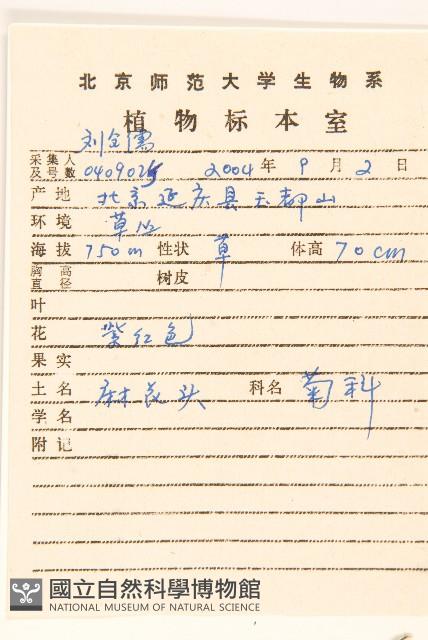 北京师范大学生物系
植物标本室
刘全儒
采集人及号数 0409025 2004年9月2日
产地 北京延庆县玉都山
环境 草丛
海拔 750m 性状 草 体高 70cm
胸高直径 树皮
叶
花 紫红色
果实
土名 麻花头 科名 菊科
学名
附记
國立自然科學博物館
NATIONAL MUSEUM OF NATURAL SCIENCE